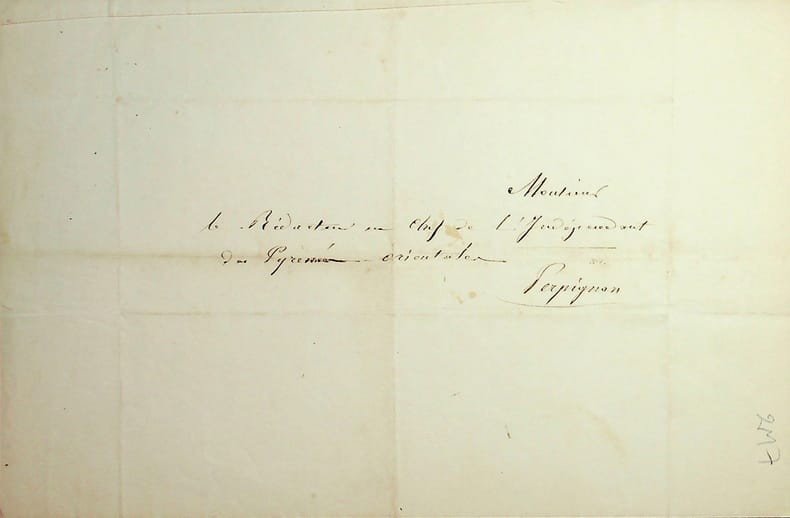 Monsieur
le Rédacteur en chef de l'Indépendant
des Pyrénées orientales
Perpignan